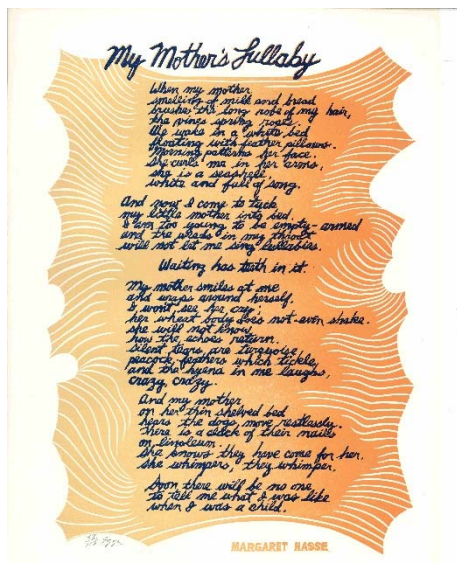 My Mother's Lullaby
When my mother
smelling of milk and bread
brushes the long robe of my hair,
the vines spring roses.
We wake in a white bed
floating with feather pillows.
Morning patterns her face.
She curls me in her arms,
she is a seashell,
white and full of song.
And now I come to tuck
my little mother into bed.
I am too young to be empty-armed
and the weeds in my throat
will not let me sing lullabies.
Waiting has teeth in it.
My mother smiles at me
and wraps around herself.
I won't see her cry;
her wheat body does not even shake.
she will not know
how the echoes return.
Silent tears are turquoise
peacock feathers which tickle,
and the hyena in me laughs,
crazy, crazy.
And my mother
on her thin shelved bed
hears the dogs move restlessly.
There is a clack of their nails
on linoleum.
She knows they have come for her.
She whimpers, they whimper.
Soon there will be no one
to tell me what I was like
when I was a child.
MARGARET HASSE